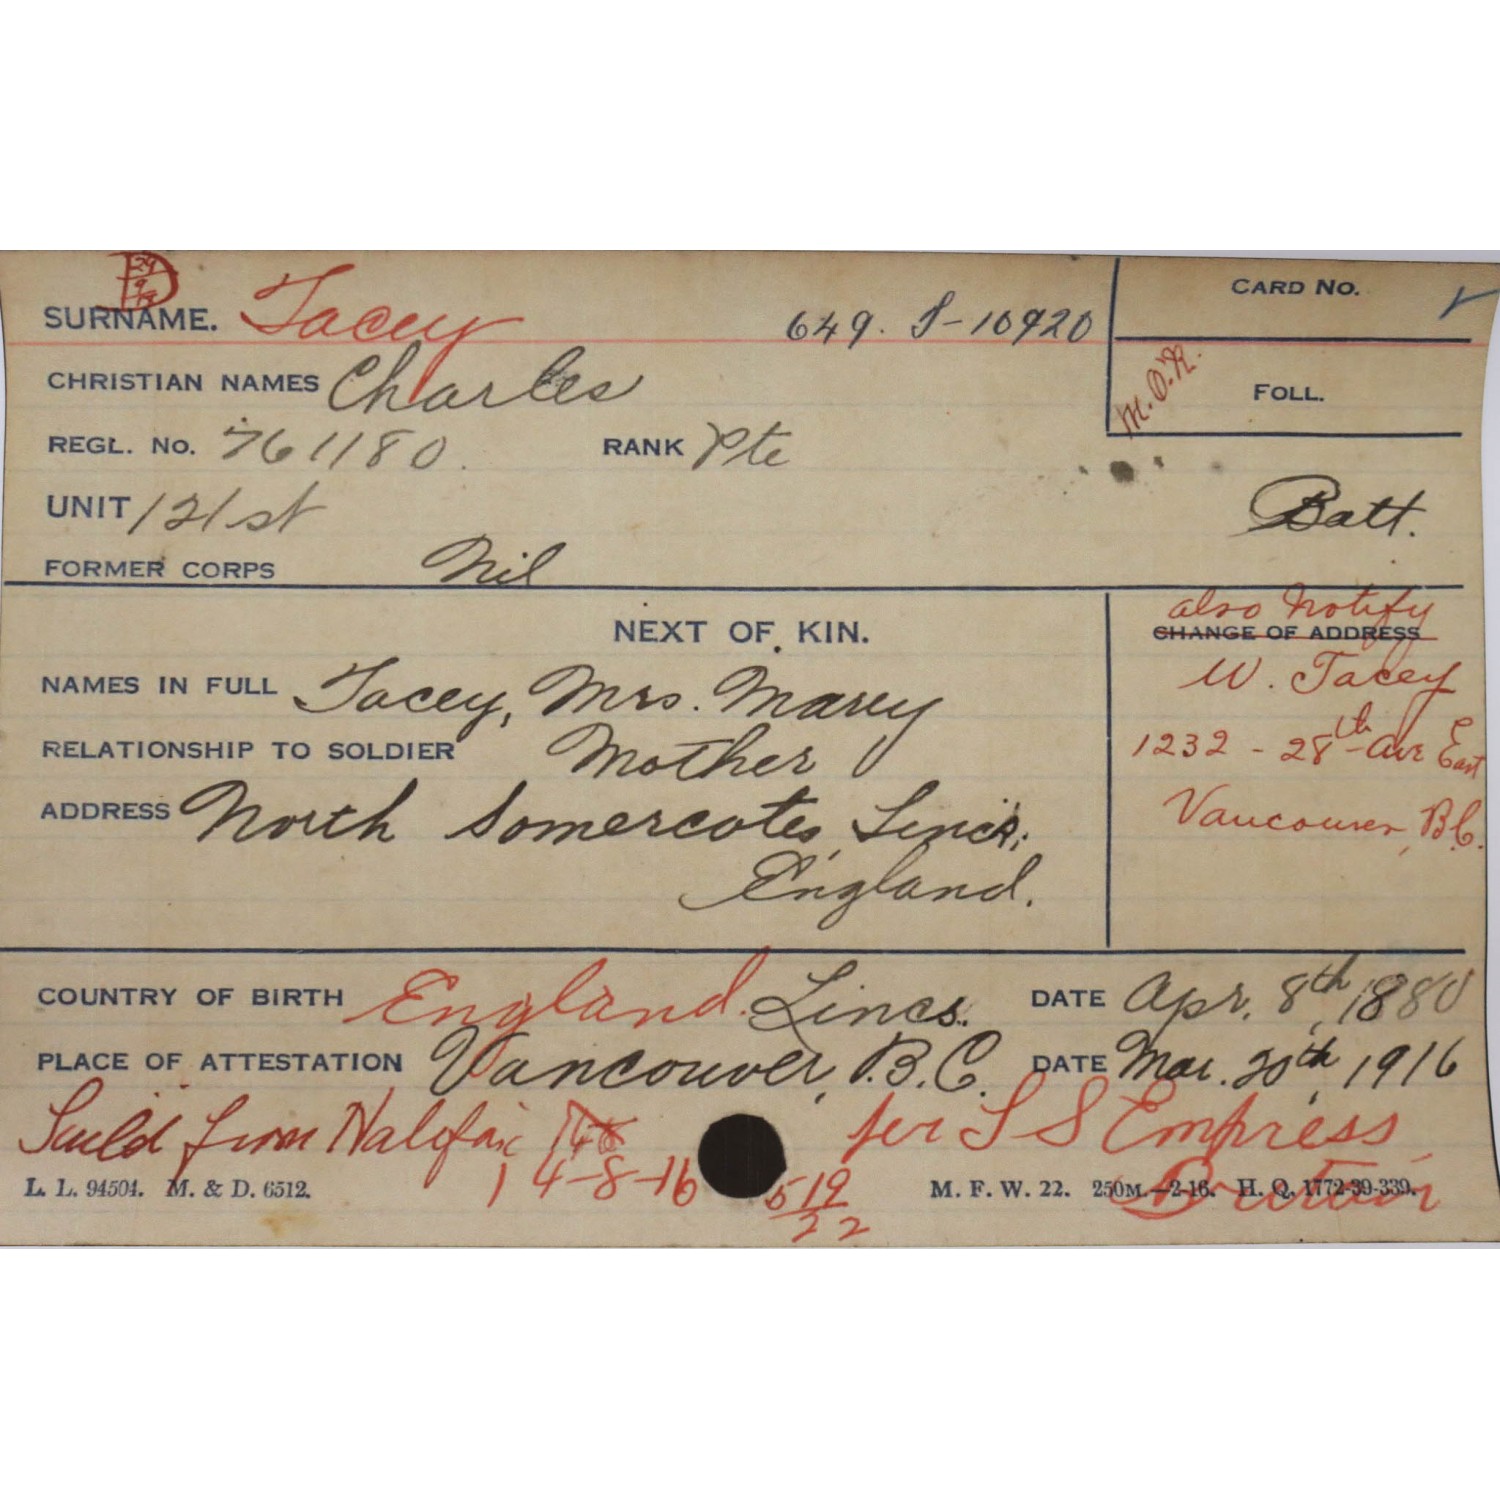 D 29/9/19
SURNAME. Tacey 649. S-10920 CARD No.
CHRISTIAN NAMES Charles M.O.R. FOLL.
REGL. No. 761180. RANK Pte
UNIT 121st Batt.
FORMER CORPS Nil
NEXT OF KIN. also Notify
CHANGE OF ADDRESS
NAMES IN FULL Tacey, Mrs. Marey W. Tacey
RELATIONSHIP TO SOLDIER Mother 1232 - 28th Ave East
ADDRESS North Somercotes, Lincs; Vancouver, B.C.
England.
COUNTRY OF BIRTH England. Lincs. DATE Apr. 8th, 1880
PLACE OF ATTESTATION Vancouver, B.C. DATE Mar. 20th, 1916
Sailed from Halifax 14-8-16 per S S Empress
L. L. 94504. M. & D. 6512. 519/22 M. F. W. 22. 250M.-2-16. H. Q. 1772-39-339.
Britain